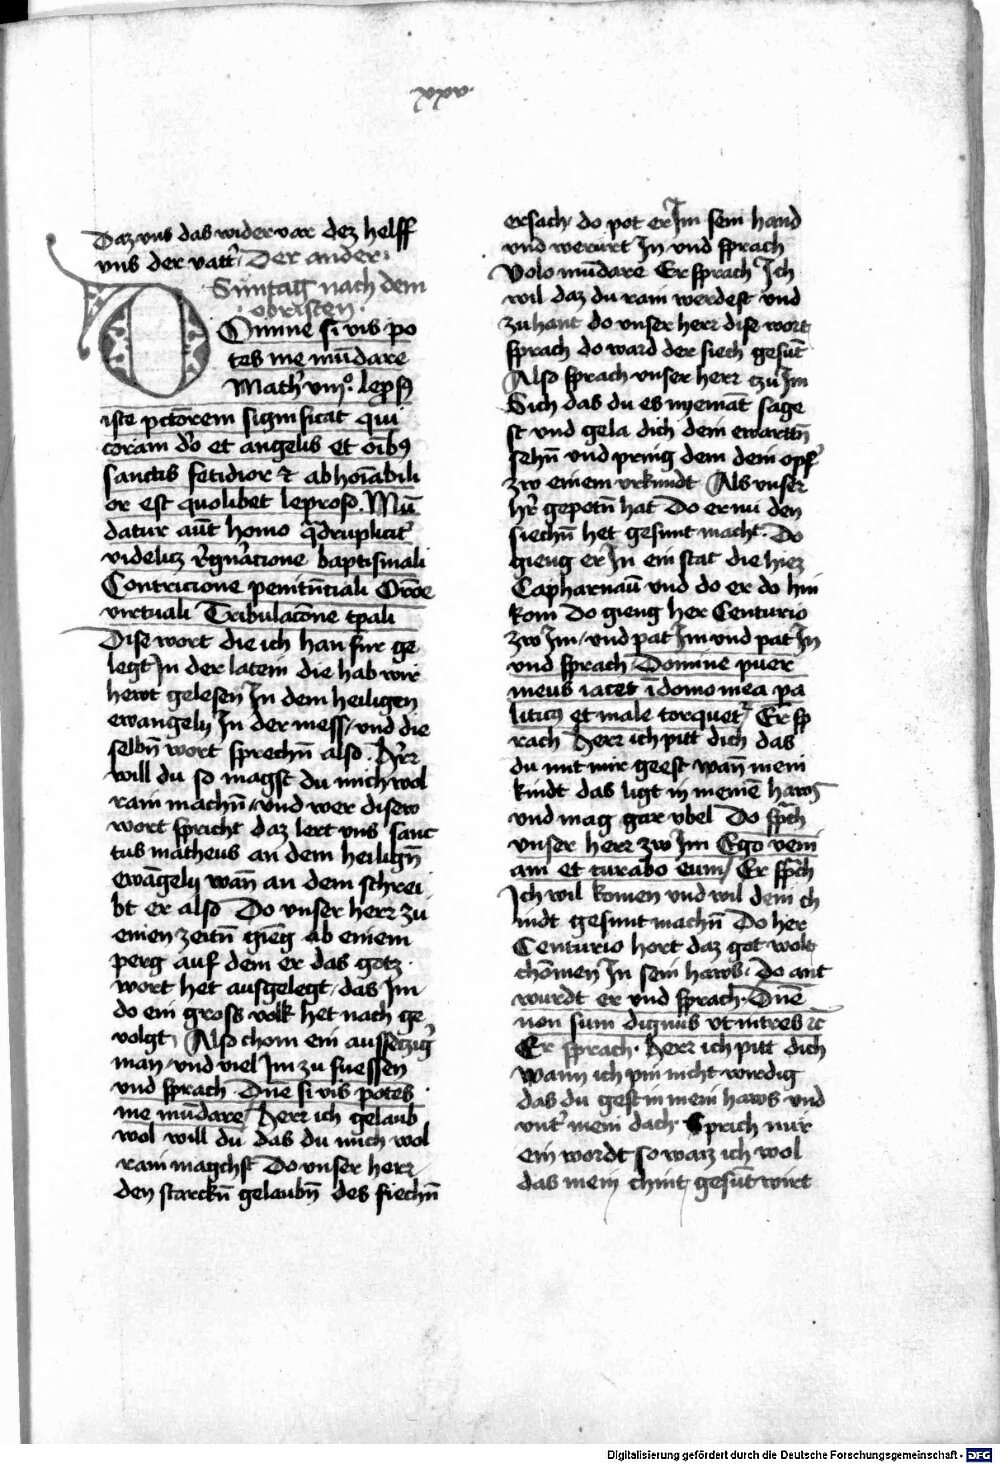 xxv
Daz vns das widervar dez helff
vns der vattʼ Der ander
Sũntag nach dem
obristen
Domine si vis po
tes me mũdare
Mathʼ viijº leprosꝰ
iste pctõrem significat qui
coram dõ et angelis et oĩbꝫ
sanctis fetidior ⁊ abhoĩabili
or est quolibet leproso. Mũ
datur aũt homo qᷓdruplicitʼ
videlicꝫ rʼgnʼacione baptismali
Contricione penitñtiali Orõe
virtuali Tribulacõne tp̱ali
Dise wort die ich han fur ge
legt In der latein die hab wir
hewt gelesen In dem heiligen
ewangely In der mess / vnd die
selbñ wort sprechñ also. Hʼrr
will du so magst du mich wol
rain machñ / vnd wer disew
wort spricht daz lert vns sanc
tus matheus an dem heiligñ
ewãgely wañ an dem schrei
bt er also Do vnser herr zu
einen zeitñ gieng ab einem
perg auf dem er das gotz
wort het ausgelegt / das Im
do ein gross volk het nach ge
volgt / Also chom ein aussetzigʼ
man / vnd viel Im zu fuessen
vnd sprach Dñe si vis potes
me mũdare / Herr ich gelaub
wol will du das du mich wol
rain magchst Do vnser herr
den starckñ gelaubñ des siechñ
ersach / do pot er Im sein hand
vnd werürt In vnd sprach
Volo mũdare Er sprach Ich
wil daz du rain werdest vnd
zu hant do vnser herr dise wort
sprach do ward der siech gesũt
Also sprach vnser herr czu Im
Sich das du es nyemãt sage
st vnd gela dich dein ewarttñ
sehñ vnd pring dem dein opfʼ
zw einem vrkundt Als vnser
hʼr gepotñ hat Do er nu den
siechñ het gesunt macht. Do
gieng er In ein stat die hiez
Capharnaũ vnd do er do hin
kom Do gieng her Centurio
zw Im / vnd pat Im vnd pat In
vnd sprach / Domine puer
meus iacet ĩ domo mea pa
liticꝰ et male torquetʼ Er sp
rach Herr ich pitt dich das
du mit mir geest wañ mein
kindt das ligt in meinẽ haws
vnd mag gar vbel Do sp̃ch
vnser herr zw Im Ego veni
am et curabo eum / Er sp̃ch
Ich wil komen vnd wil dein ch
indt gesunt machñ Do her
Centurio hort daz got wolt
chõmen In sein haws. Do ant
wurdt er vnd sprach. Dñe
non sum dignus vt intres ⁊c̃
Er sprach. Herr ich pitt dich
Wann ich pin nicht wirdig
das du gest in mein haws vnd
vntʼ mein dach. Sprich nur
ein wordt so waiz ich wol
das mein chint gesũt wirt
Digitalisierung gefördert durch die Deutsche Forschungsgemeinschaft - DFG